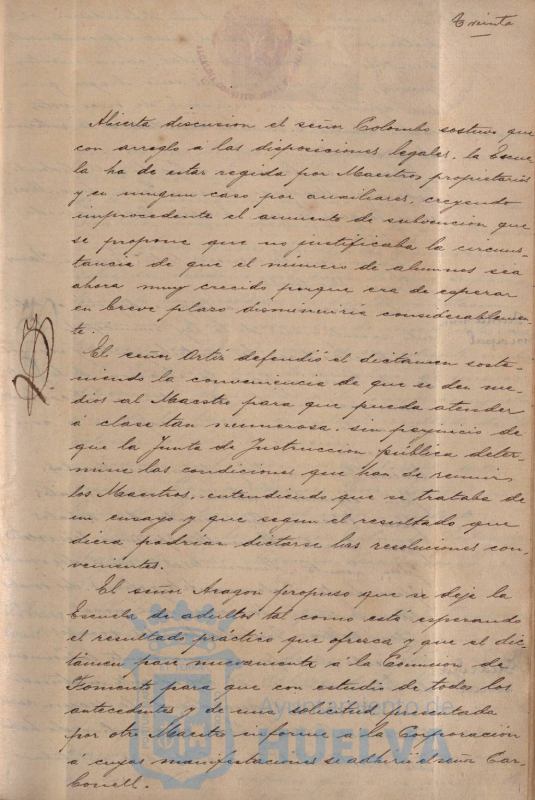 Treinta
Abierta discusion el señor Colombo sostuvo que
con arreglo á las disposiciones legales, la Escue-
la ha de estar regida por Maestros propietarios
y en ningun caso por auxiliares, creyendo
improcedente el aumento de subvencion que
se propone que no justificaba la circuns-
tancia de que el número de alumnos sea
ahora muy crecido porque era de esperar
en breve plazo disminuiria considerablemen-
te.
El señor Ortiz defendió el dictámen soste-
niendo la conveniencia de que se den me-
dios al Maestro para que pueda atender
á clase tan numerosa, sin perjuicio de
que la Junta de Instruccion pública deter-
mine las condiciones que han de reunir
los Maestros, entendiendo que se trataba de
un ensayo y que segun el resultado que
diera podrian dictarse las resoluciones con-
venientes.
El señor Aragon propuso que se deje la
Escuela de adultos tal como está esperando
el resultado práctico que ofresca y que el dic-
támen pase nuevamente á la Comision de
Fomento para que con estudio de todos los
antecedentes y de una solicitud presentada
por otro Maestro informe a la Corporación
á cuyas manifestaciones se adhirió el señor Car-
bonell.
Ayuntamiento de
HUELVA